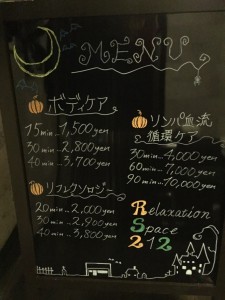 MENU
ボディケア
15min...1,500yen
30min...2,800yen
40min...3,700yen
リフレクソロジー
20min...2,000yen
30min...2,900yen
40min...3,800yen
リンパ血流
循環ケア
30min...4,000yen
60min...7,000yen
90min...70,000yen
Relaxation
Space
212